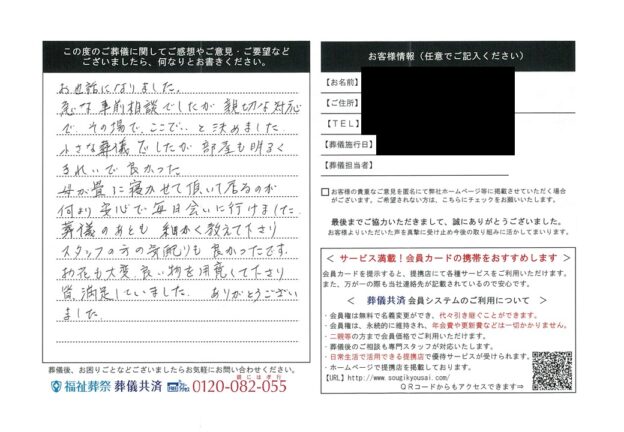 この度のご葬儀に関してご感想やご意見・ご要望など
ございましたら、何なりとお書きください。
お世話になりました。
急な事前相談でしたが 親切な対応
で、その場で、ここで、と決めました。
小さな葬儀でしたが 部屋も明るく
きれいで良かった。
母が畳に寝かせて頂いて居るのが
何より安心で毎日会いに行けました。
葬儀のあとも 細かく教えて下さり
スタッフの方の気配りも良かったです。
お花も大変良い物を用意して下さり
皆満足していました。 ありがとうござい
ました。
葬儀後、お困りごとなどございましたらお気軽にお問い合わせください。
福祉葬祭 葬儀共済 0120-082-055
お客様情報（任意でご記入ください）
【お名前】
【ご住所】
【TEL】
【葬儀施行日】
【葬儀担当者】
お客様の貴重なご意見を匿名にて弊社ホームページ等に掲載させていただく場合
がございます。ご希望されない方は、こちらにチェックをお願いいたします。
最後までご協力いただきまして、誠にありがとうございました。
お客様よりいただいた声を真摯に受け止め今後の取り組みに活かしてまいります。
＜ サービス満載！会員カードの携帯をおすすめします ＞
会員カードを提示すると、提携店にて各種サービスをご利用いただけます。
また、万が一の際も当社連絡先が記載されているので安心です。
＜ 葬儀共済 会員システムのご利用について ＞
・会員権は無料で名義変更ができ、代々引き継ぐことができます。
・会員権は、永続的に維持され、年会費や更新費などは一切かかりません。
・二親等の方まで会員価格でご利用いただけます。
・葬儀後のご相談も専門スタッフが対応いたします。
・日常生活で活用できる提携店で優待サービスが受けられます。
・ホームページで提携店を掲載しております。
【URL】http://www.sougikyousai.com/
QRコードからもアクセスできます⇒